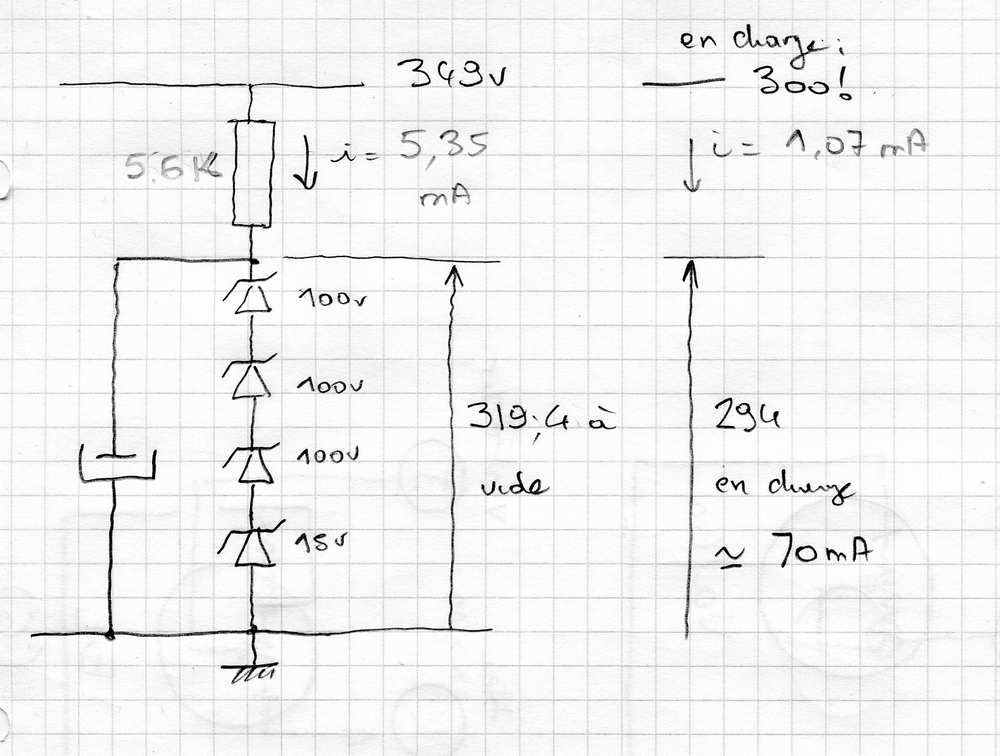 en charge:
349v
300!
5.6K
i = 5,35
mA
i = 1,07 mA
100v
100v
319,4 à
vide
294
en charge
≃ 70mA
100v
15v